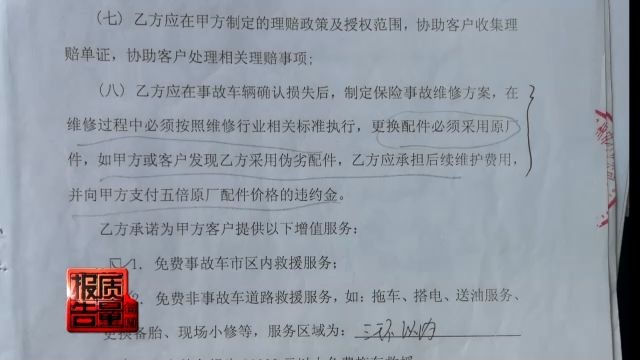 （七）乙方应在甲方制定的理赔政策及授权范围，协助客户收集理
赔单证，协助客户处理相关理赔事项；
（八）乙方应在事故车辆确认损失后，制定保险事故维修方案，在
维修过程中必须按照维修行业相关标准执行，更换配件必须采用原厂
件，如甲方或客户发现乙方采用伪劣配件，乙方应承担后续维护费用，
并向甲方支付五倍原厂配件价格的违约金。
乙方承诺为甲方客户提供以下增值服务：
免费事故车市区内救援服务；
免费非事故车道路救援服务，如：拖车、搭电、送油服务、
更换备胎、现场小修等，服务区域为：三环以内
质量
报告